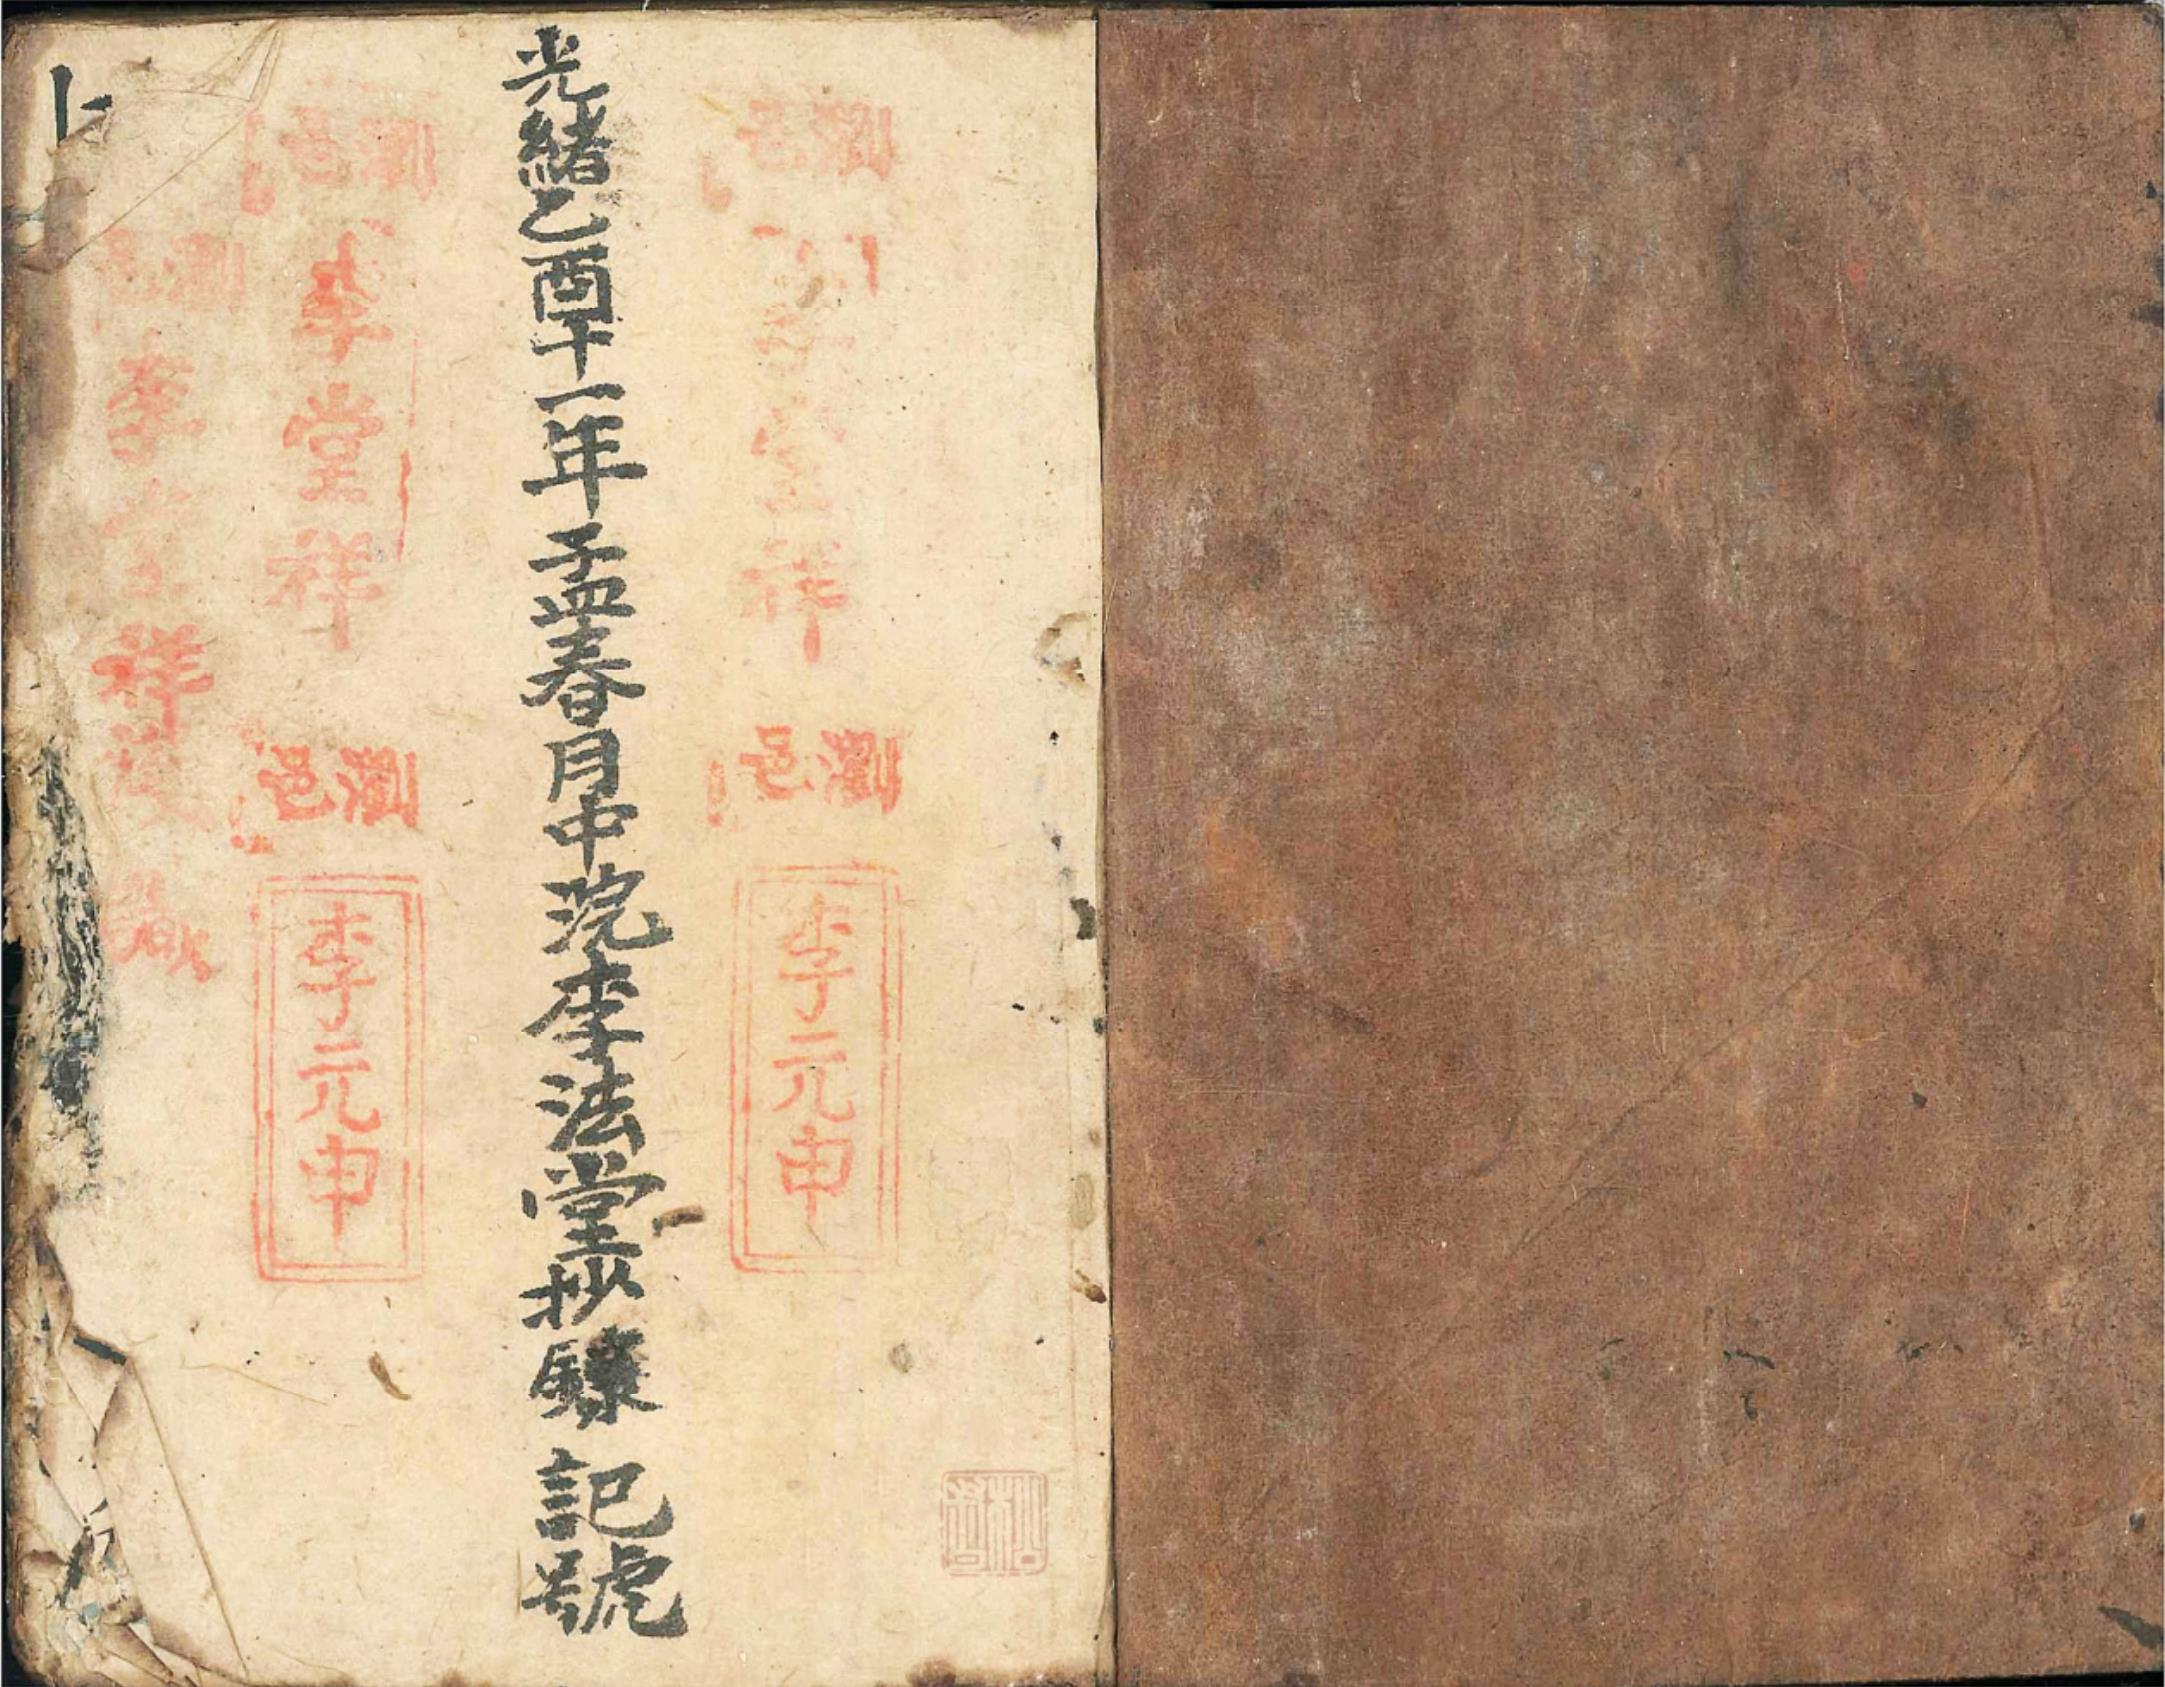 光緒乙酉十一年孟春月中浣李法堂抄錄 記號
邑
祥
瀏邑
李元申
瀏邑
李堂祥
瀏邑
李元申
李堂祥